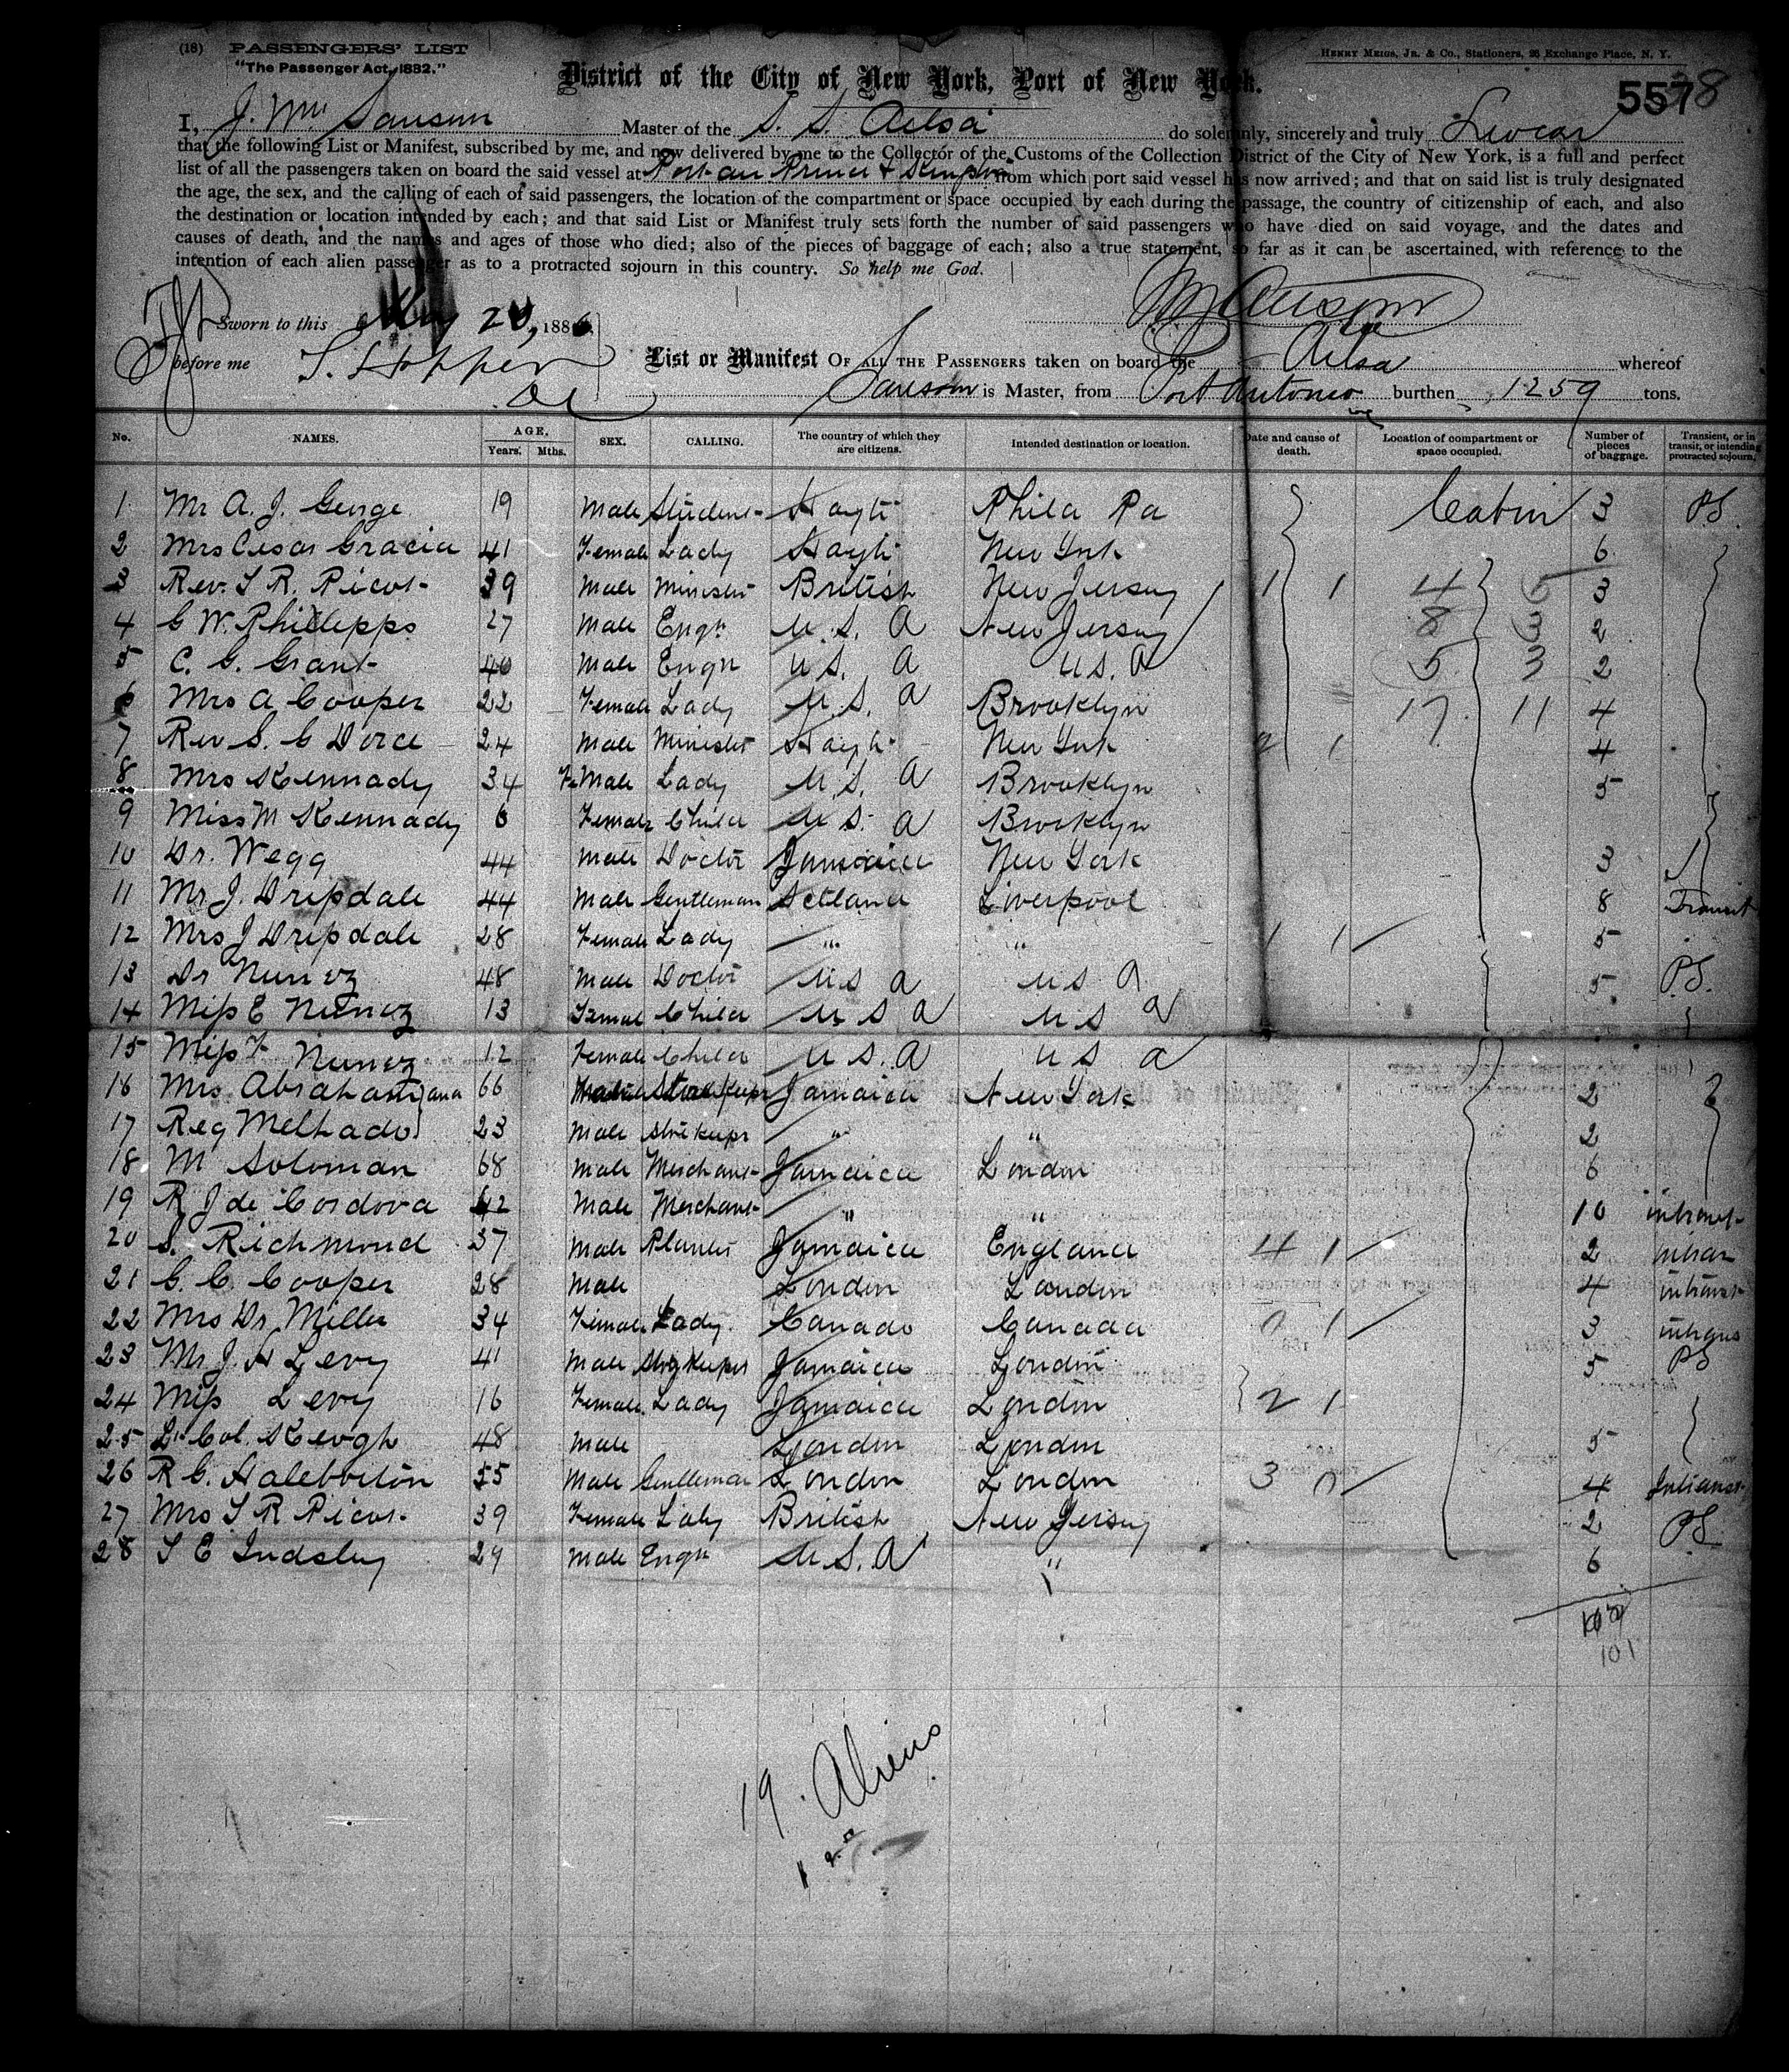 (18) PASSENGERS' LIST
"The Passenger Act, 1882."
HENRY MEIGS, JR. & CO., Stationers, 26 Exchange Place, N. Y.
District of the City of New York, Port of New York.
557
I, J. Wm Sansom Master of the S. S. Ailsa do solemnly, sincerely and truly Swear
that the following List or Manifest, subscribed by me, and now delivered by me to the Collector of the Customs of the Collection District of the City of New York, is a full and perfect
list of all the passengers taken on board the said vessel at Port au Prince & from which port said vessel has now arrived; and that on said list is truly designated
the age, the sex, and the calling of each of said passengers, the location of the compartment or space occupied by each during the passage, the country of citizenship of each, and also
the destination or location intended by each; and that said List or Manifest truly sets forth the number of said passengers who have died on said voyage, and the dates and
causes of death, and the names and ages of those who died; also of the pieces of baggage of each; also a true statement, so far as it can be ascertained, with reference to the
intention of each alien passenger as to a protracted sojourn in this country. So help me God.
Sworn to this 20, 1886
before me S. Hopper
List or Manifest OF ALL THE PASSENGERS taken on board the Ailsa whereof
Sansom is Master, from Port Antonio burthen 1259 tons.
No. NAMES. AGE, Years. Mths. SEX. CALLING. The country of which they are citizens. Intended destination or location. Date and cause of death. Location of compartment or space occupied. Number of pieces of baggage. Transient, or in transit, or intending protracted sojourn,
1 Mr A. J. George 19 Male Student Hayti Phila Pa Cabin 3 P.S.
2 Mrs Cesar Gracia 41 Female Lady Hayti New York 6
3 Rev. S R. Picot 39 Male Minister British New Jersey 1 1 4 6 3
4 C W. Phillipps 27 Male Engr U. S. A New Jersey 8 3 2
5 C. G. Grant 40 Male Engr U S. A U S. A 5 3 2
6 Mrs A Cooper 22 Female Lady U. S. A Brooklyn 17 11 4
7 Rev S. C Dorce 24 Male Minister Hayti New York 4
8 Mrs Kennady 34 FeMale Lady U. S. A Brooklyn 5
9 Miss M Kennady 6 Female Child U S. A Brooklyn
10 Dr. Wegg 44 Male Doctor Jamaica New York 3
11 Mr J. Dripdale 44 Male Gentleman Scotland Liverpool 8 Transit
12 Mrs J Dripdale 28 Female Lady " " 1 1 5
13 Dr Nunez 48 Male Doctor U S A U S A 5 P.S.
14 Miss E Nunez 13 Femal Child U S A U S A
15 Miss F Nunez 12 Female Child U S. A U S A
16 Mrs Abrahams and 66 Storekeepr Jamaica New York 2
17 Reg Melhado 23 Male Storekeepr " " 2
18 M Soloman 68 Male Merchant Jamaica London 6
19 R J de Cordova 42 Male Merchant " " 10 intransit
20 S. Richmond 37 Male Planter Jamaica England 4 1 2 intran
21 C. C. Cooper 28 Male London London 4 intransit
22 Mrs Dr Miller 34 Female Lady Canada Canada 0 1 3 intrans
23 Mr J. H Levy 41 Male Storekeeper Jamaica London 5 PS
24 Miss Levy 16 Female Lady Jamaica London 2 1
25 Lt Col. Keogh 48 Male London London 5
26 R G. Haleborton 55 Male Gentleman London London 3 0 4 Intransit
27 Mrs S R Picot 39 Female Lady British New Jersey 2 PS
28 S E Indsley 29 Male Engr U. S. A " 6
101
19. Aliens